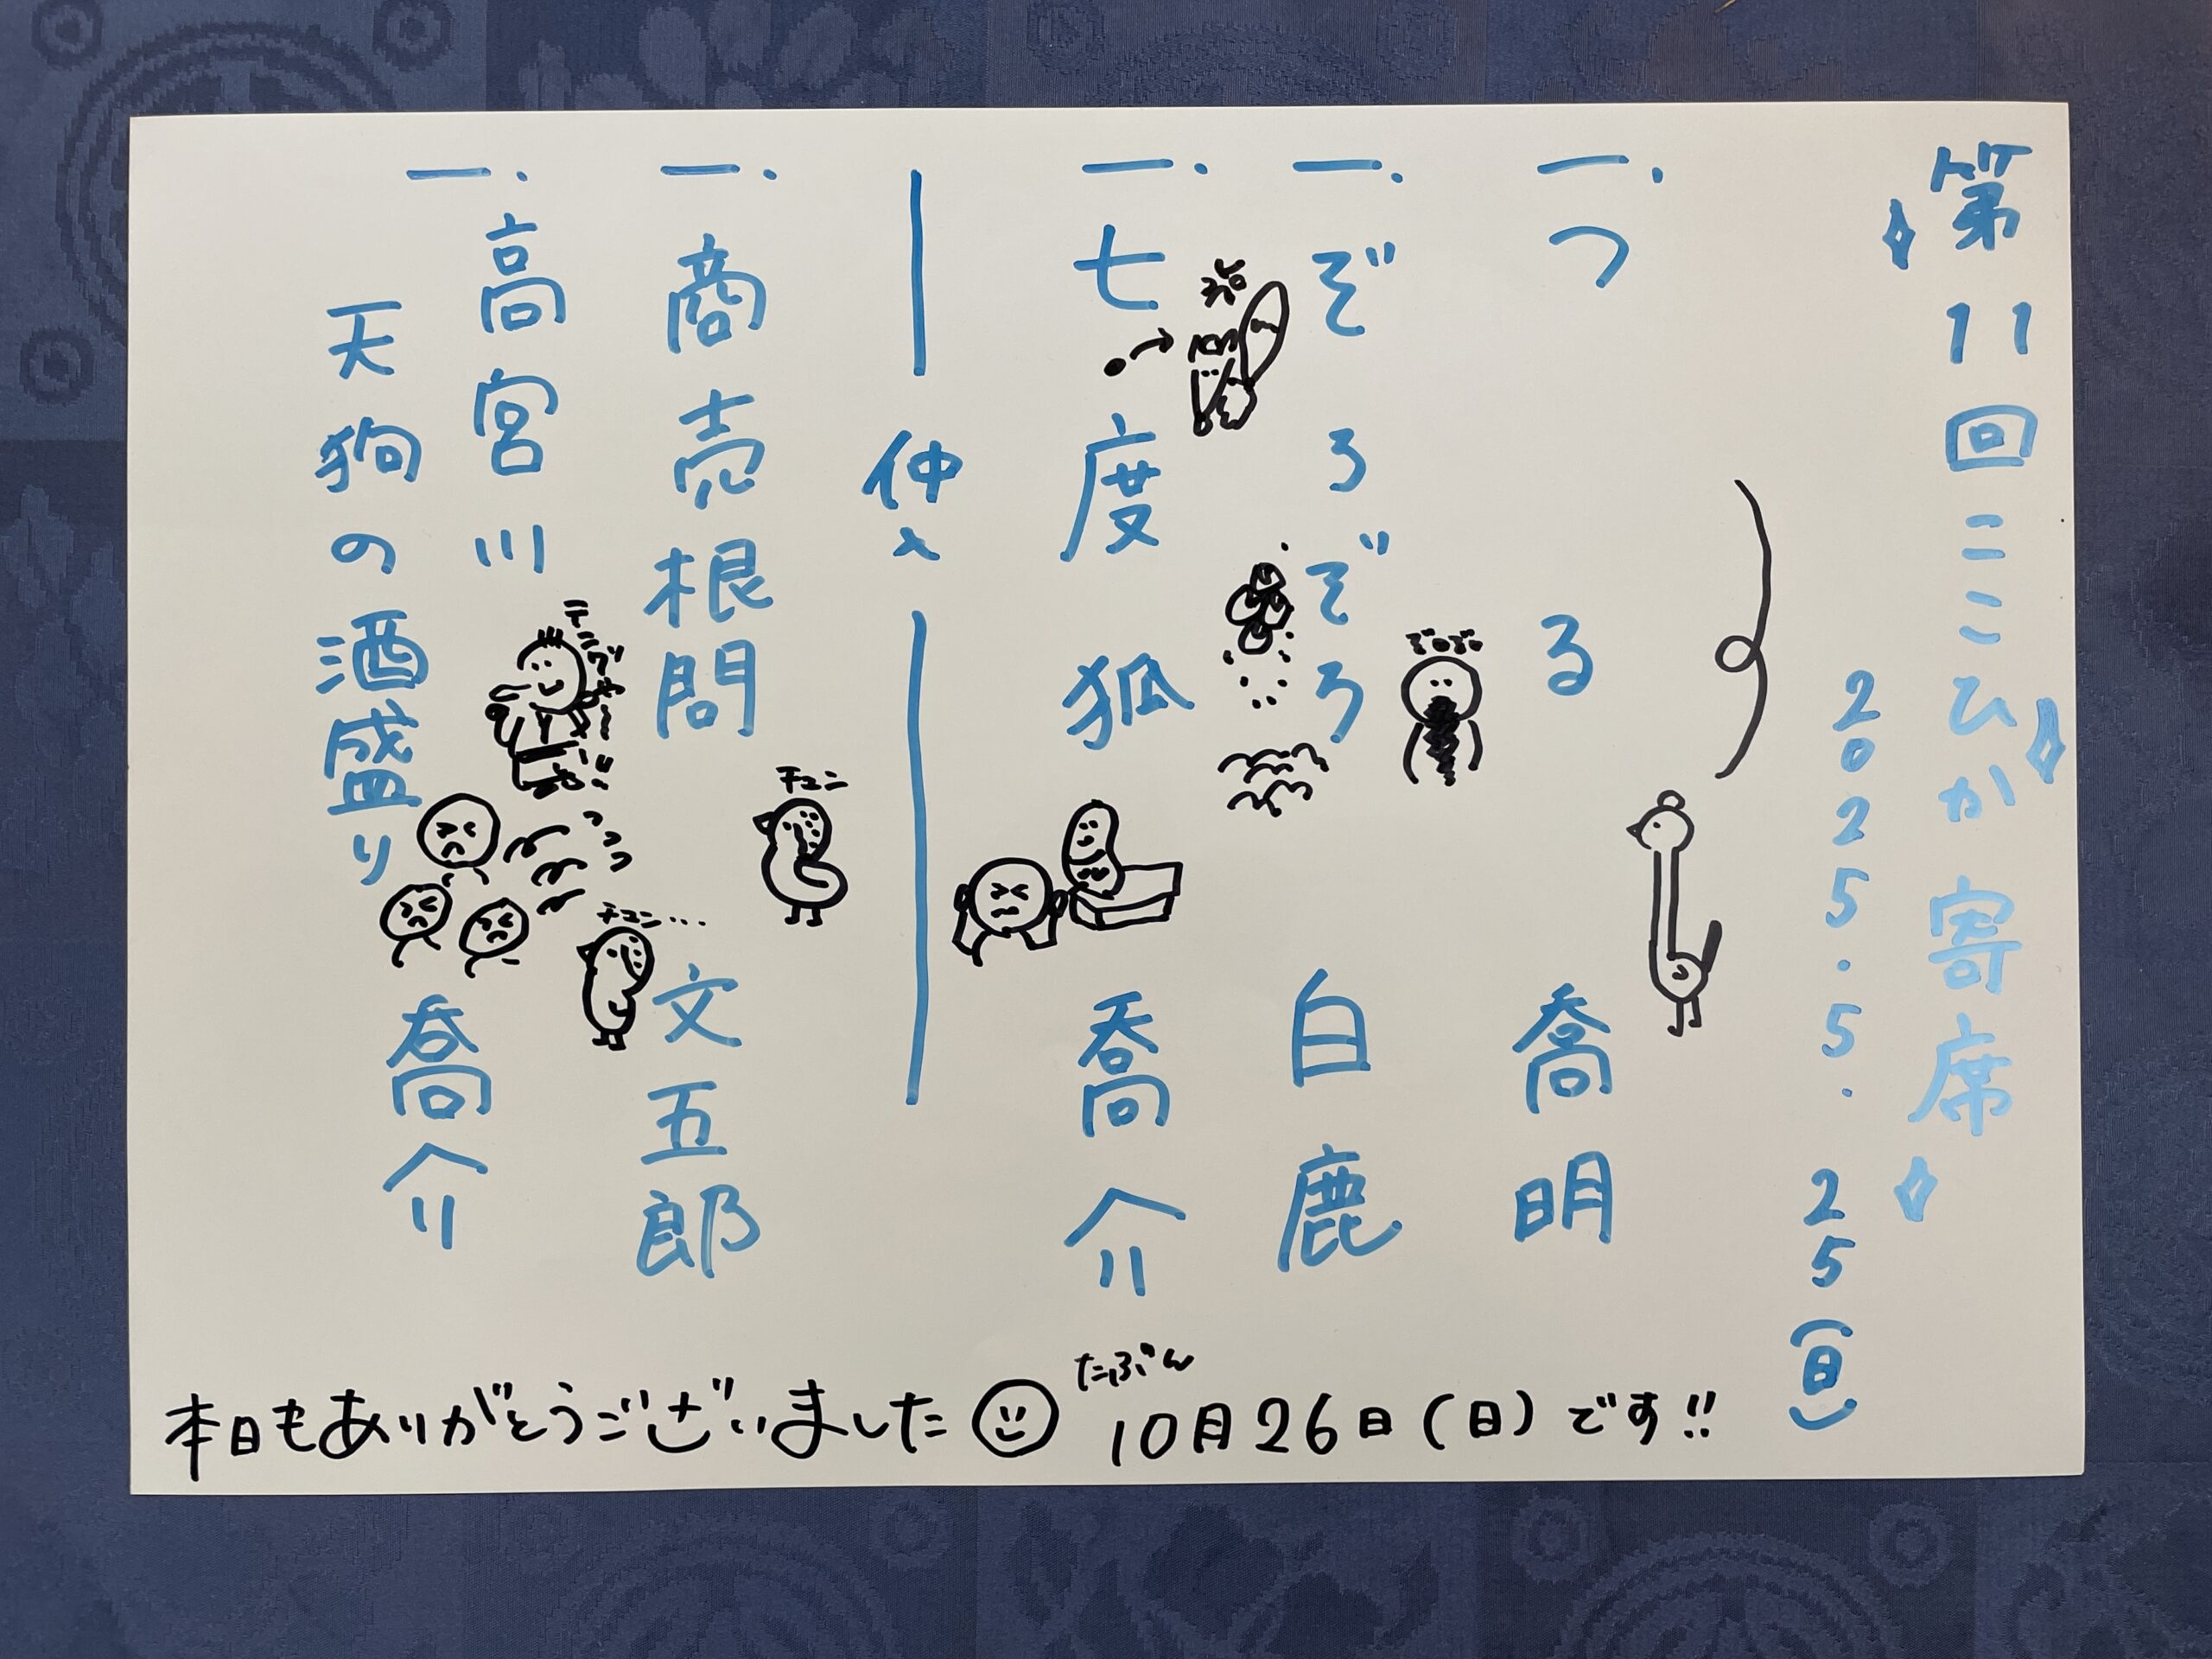 第11回ここひか寄席
2025.5.25(日)
一. つる 喬明
一. ぞろぞろ 白鹿
ぞろぞろ
一. 七度狐 喬介
仲入
一. 商売根問 文五郎
チュン
チュン…
一. 高宮川
天狗の酒盛り 喬介
本日もありがとうございました
たぶん
10月26日(日)です!!